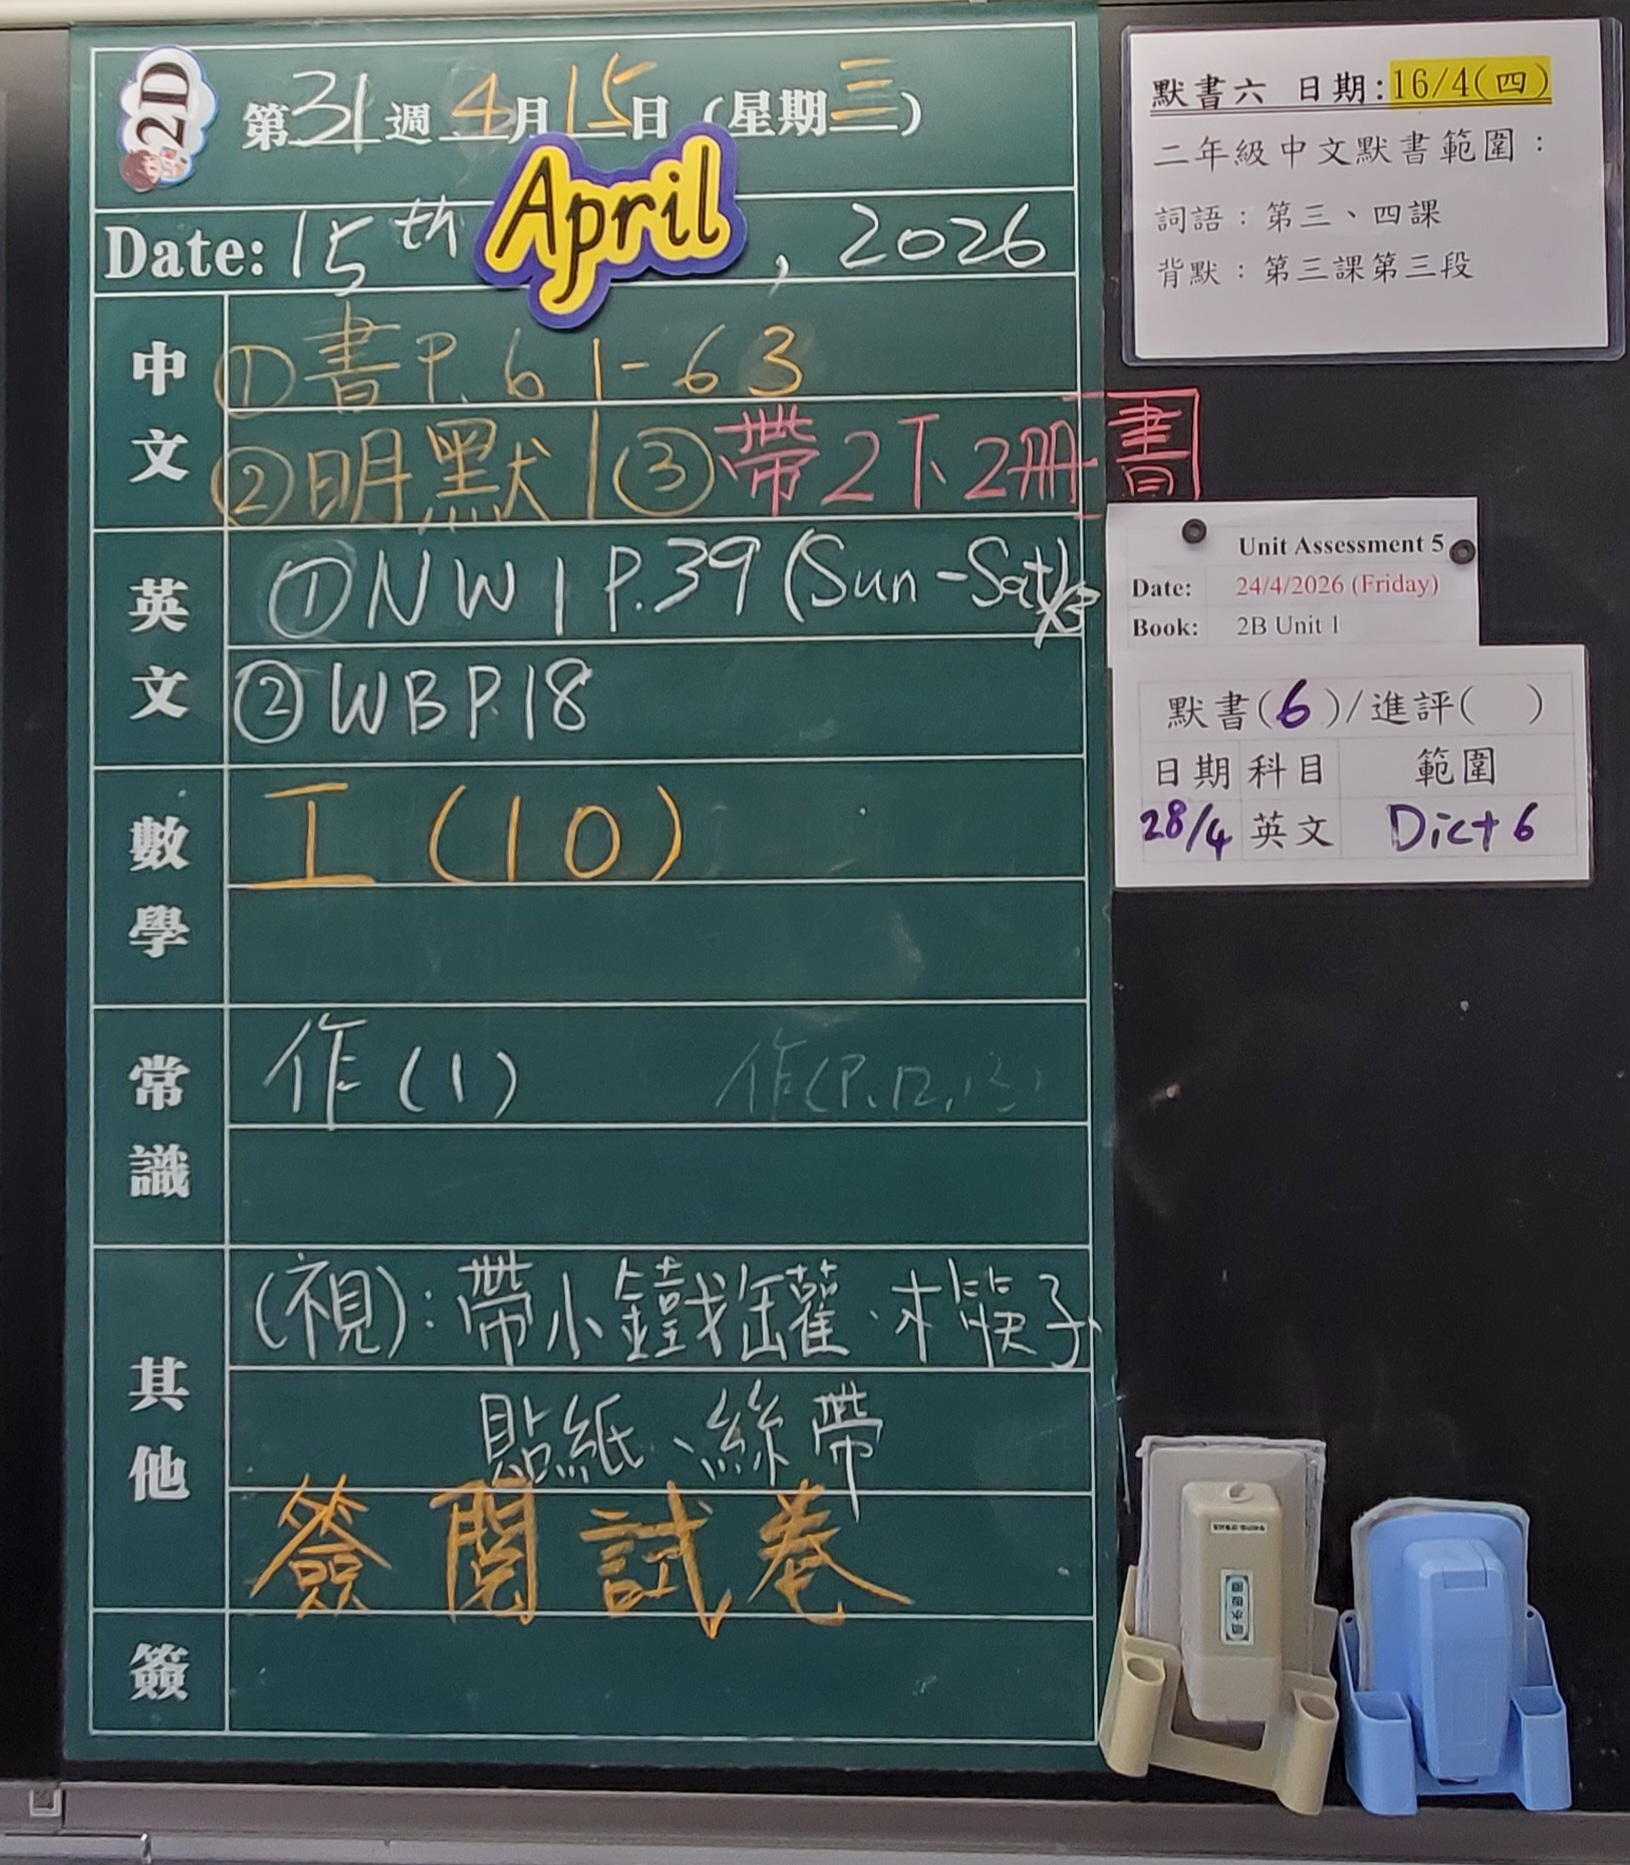 2D
第31週4月15日（星期三）
Date: 15th April, 2026
中文
①書P.61-63
②明默|③帶2下2冊書
英文
①NW1 P.39 (Sun-Sat)
②WB P.18
數學
工(10)
常識
作(1) 作(P.12,13)
其他
(視):帶小鐵罐、木筷子、
貼紙、絲帶
簽閱試卷
簽
默書六 日期:16/4(四)
二年級中文默書範圍:
詞語:第三、四課
背默:第三課第三段
Unit Assessment 5
Date: 24/4/2026 (Friday)
Book: 2B Unit 1
默書(6)/進評( )
日期 科目 範圍
28/4 英文 Dict 6